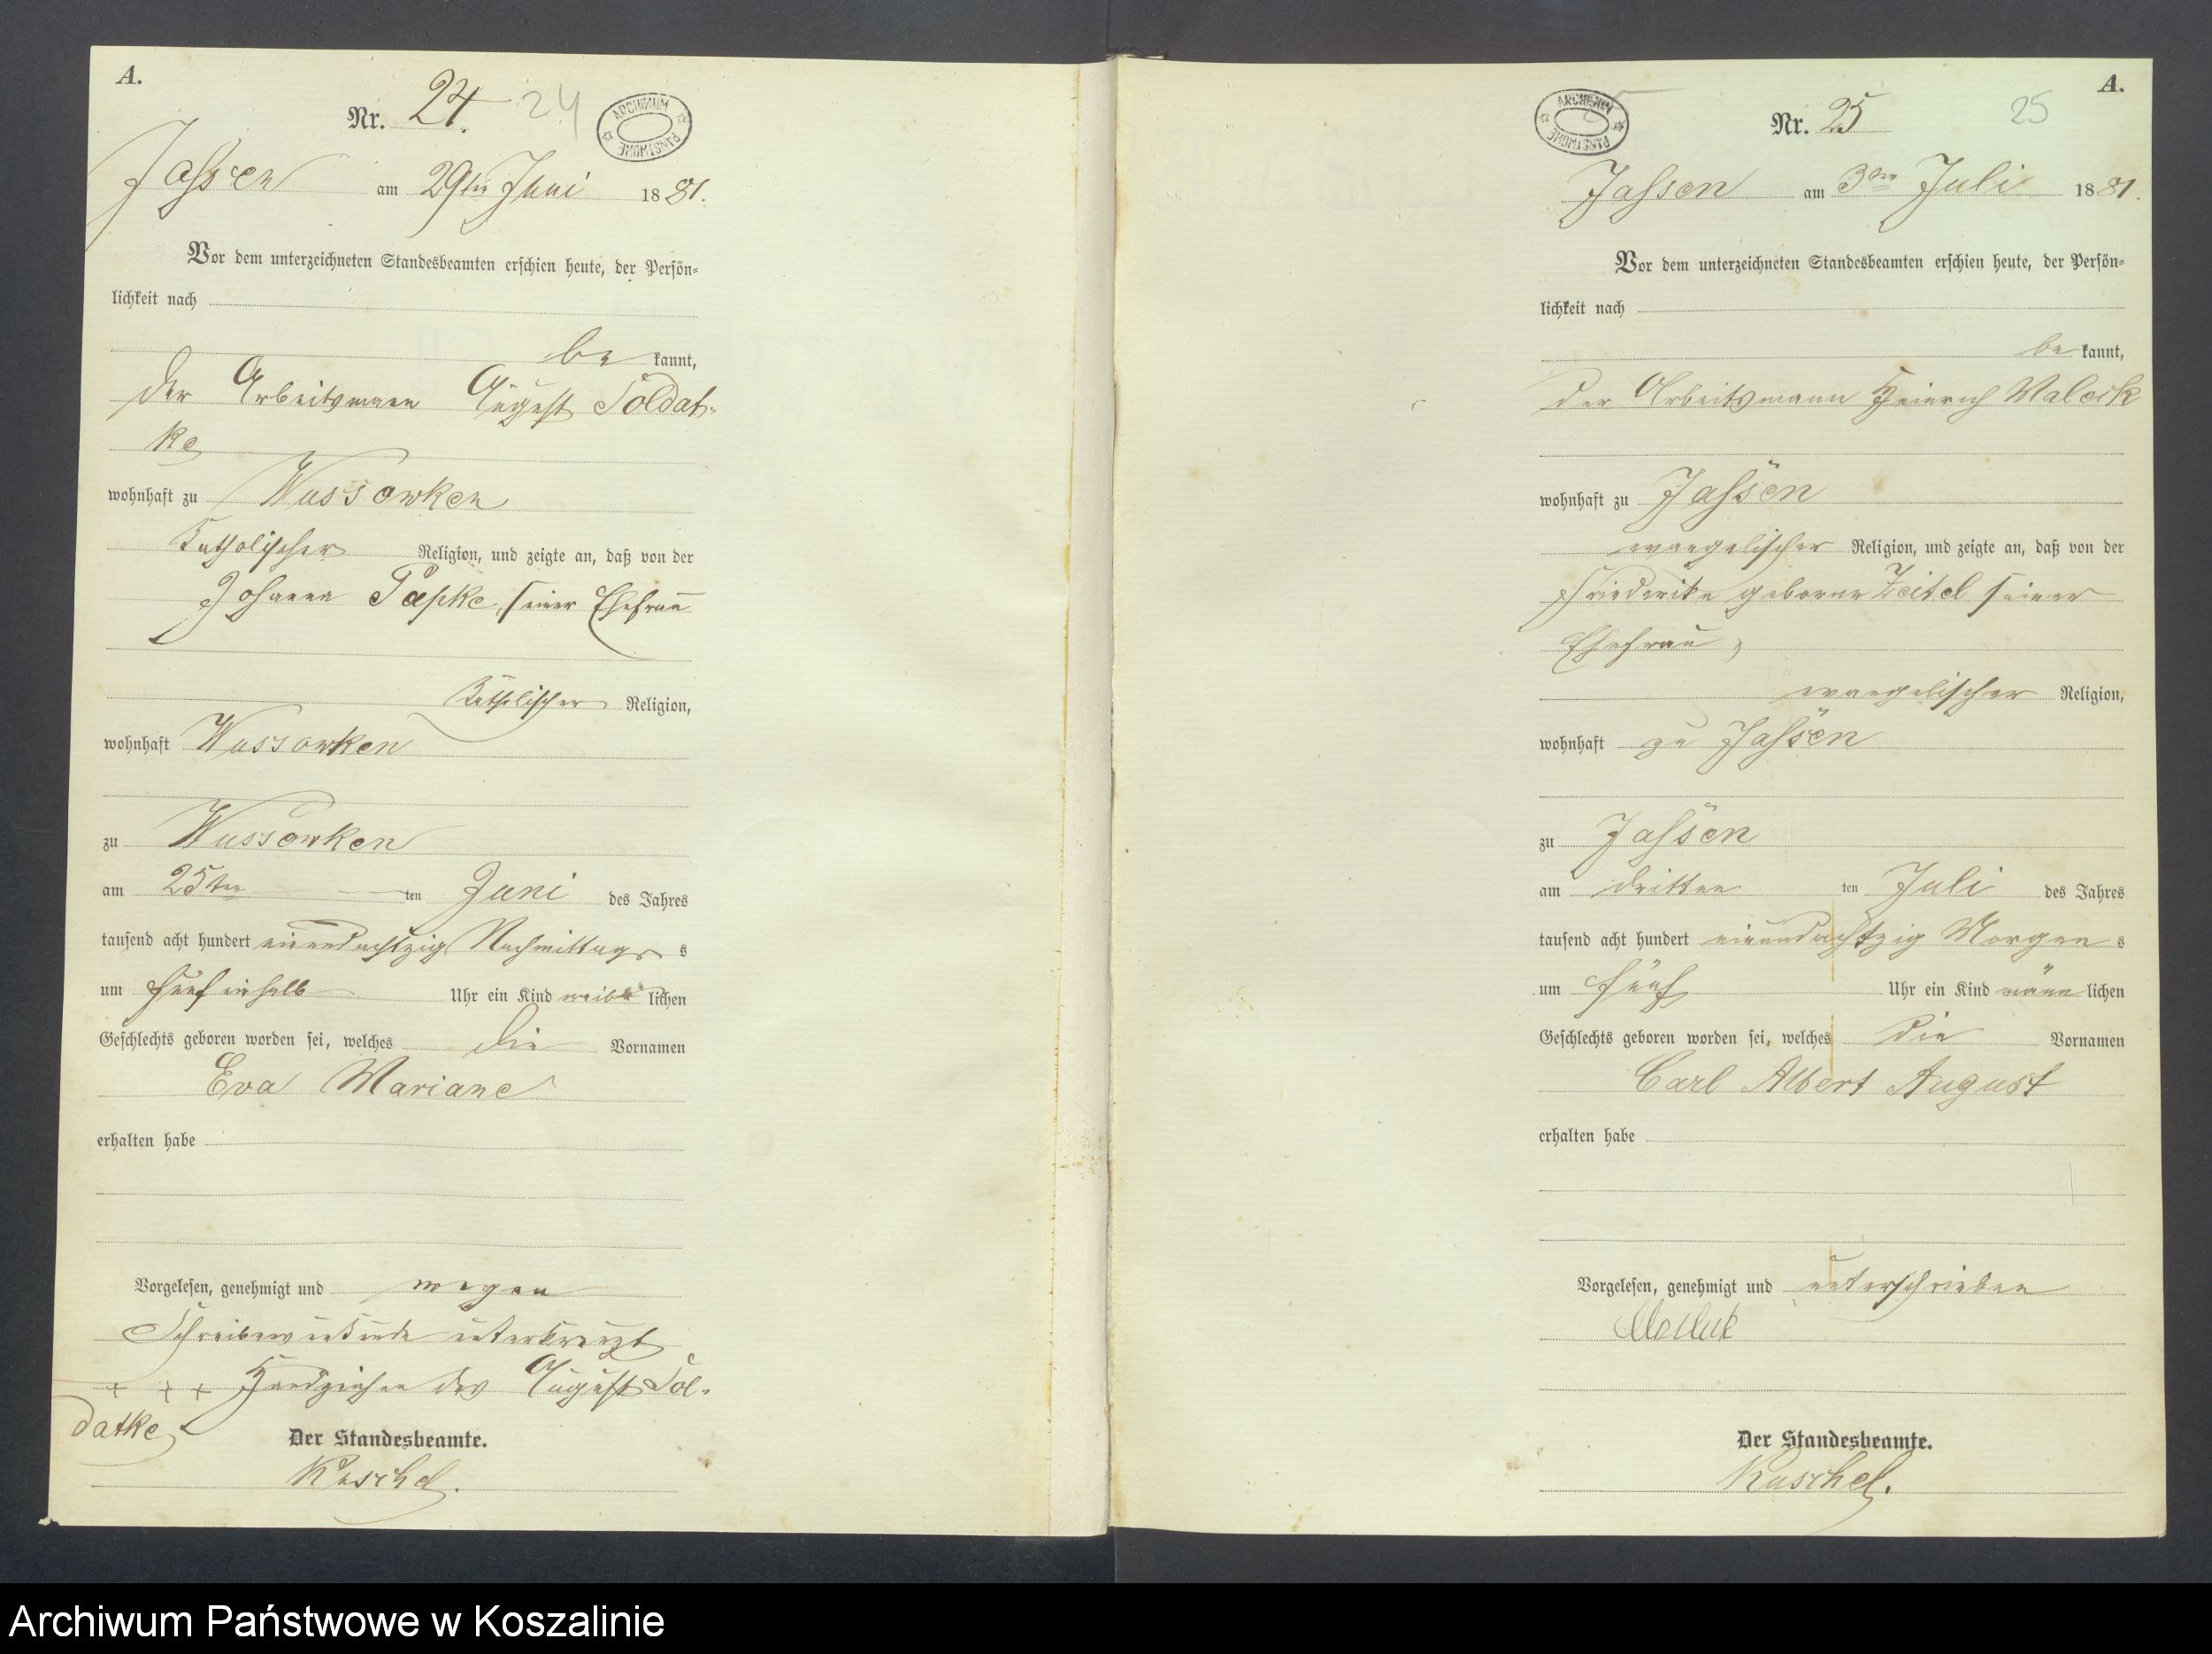 A.
Nr. 24. 24
ARCHIWUM PAŃSTWOWE
Jassen am 29ten Juni 1881.
Vor dem unterzeichneten Standesbeamten erschien heute, der Persön-
lichkeit nach
be kannt,
der Arbeitsmann August Soldat-
ke
wohnhaft zu Wussowken
Katholischer Religion, und zeigte an, daß von der
Johanna Papke, seiner Ehefrau
Katholischer Religion,
wohnhaft Wussowken
zu Wussowken
am 25ten ten Juni des Jahres
tausend acht hundert einundachtzig Nachmittags s
um fünf ein halb Uhr ein Kind weib lichen
Geschlechts geboren worden sei, welches die Vornamen
Eva Mariane
erhalten habe
Vorgelesen, genehmigt und wegen
Schreibensunkunde unterkreuzt
+ + + Handzeichen des August Sol-
datke
Der Standesbeamte.
Kuschel.
A.
Nr. 25 25
ARCHIWUM PAŃSTWOWE
Jassen am 3ten Juli 1881.
Vor dem unterzeichneten Standesbeamten erschien heute, der Persön-
lichkeit nach
be kannt,
der Arbeitsmann Heinrich
wohnhaft zu Jassen
evangelischer Religion, und zeigte an, daß von der
Friederike geborne Zeitel seiner
Ehefrau,
evangelischer Religion,
wohnhaft zu Jassen
zu Jassen
am dritten ten Juli des Jahres
tausend acht hundert einundachtzig Morgen s
um fünf Uhr ein Kind männ lichen
Geschlechts geboren worden sei, welches die Vornamen
Carl Albert August
erhalten habe
Vorgelesen, genehmigt und unterschrieben
Der Standesbeamte.
Kuschel.
Archiwum Państwowe w Koszalinie